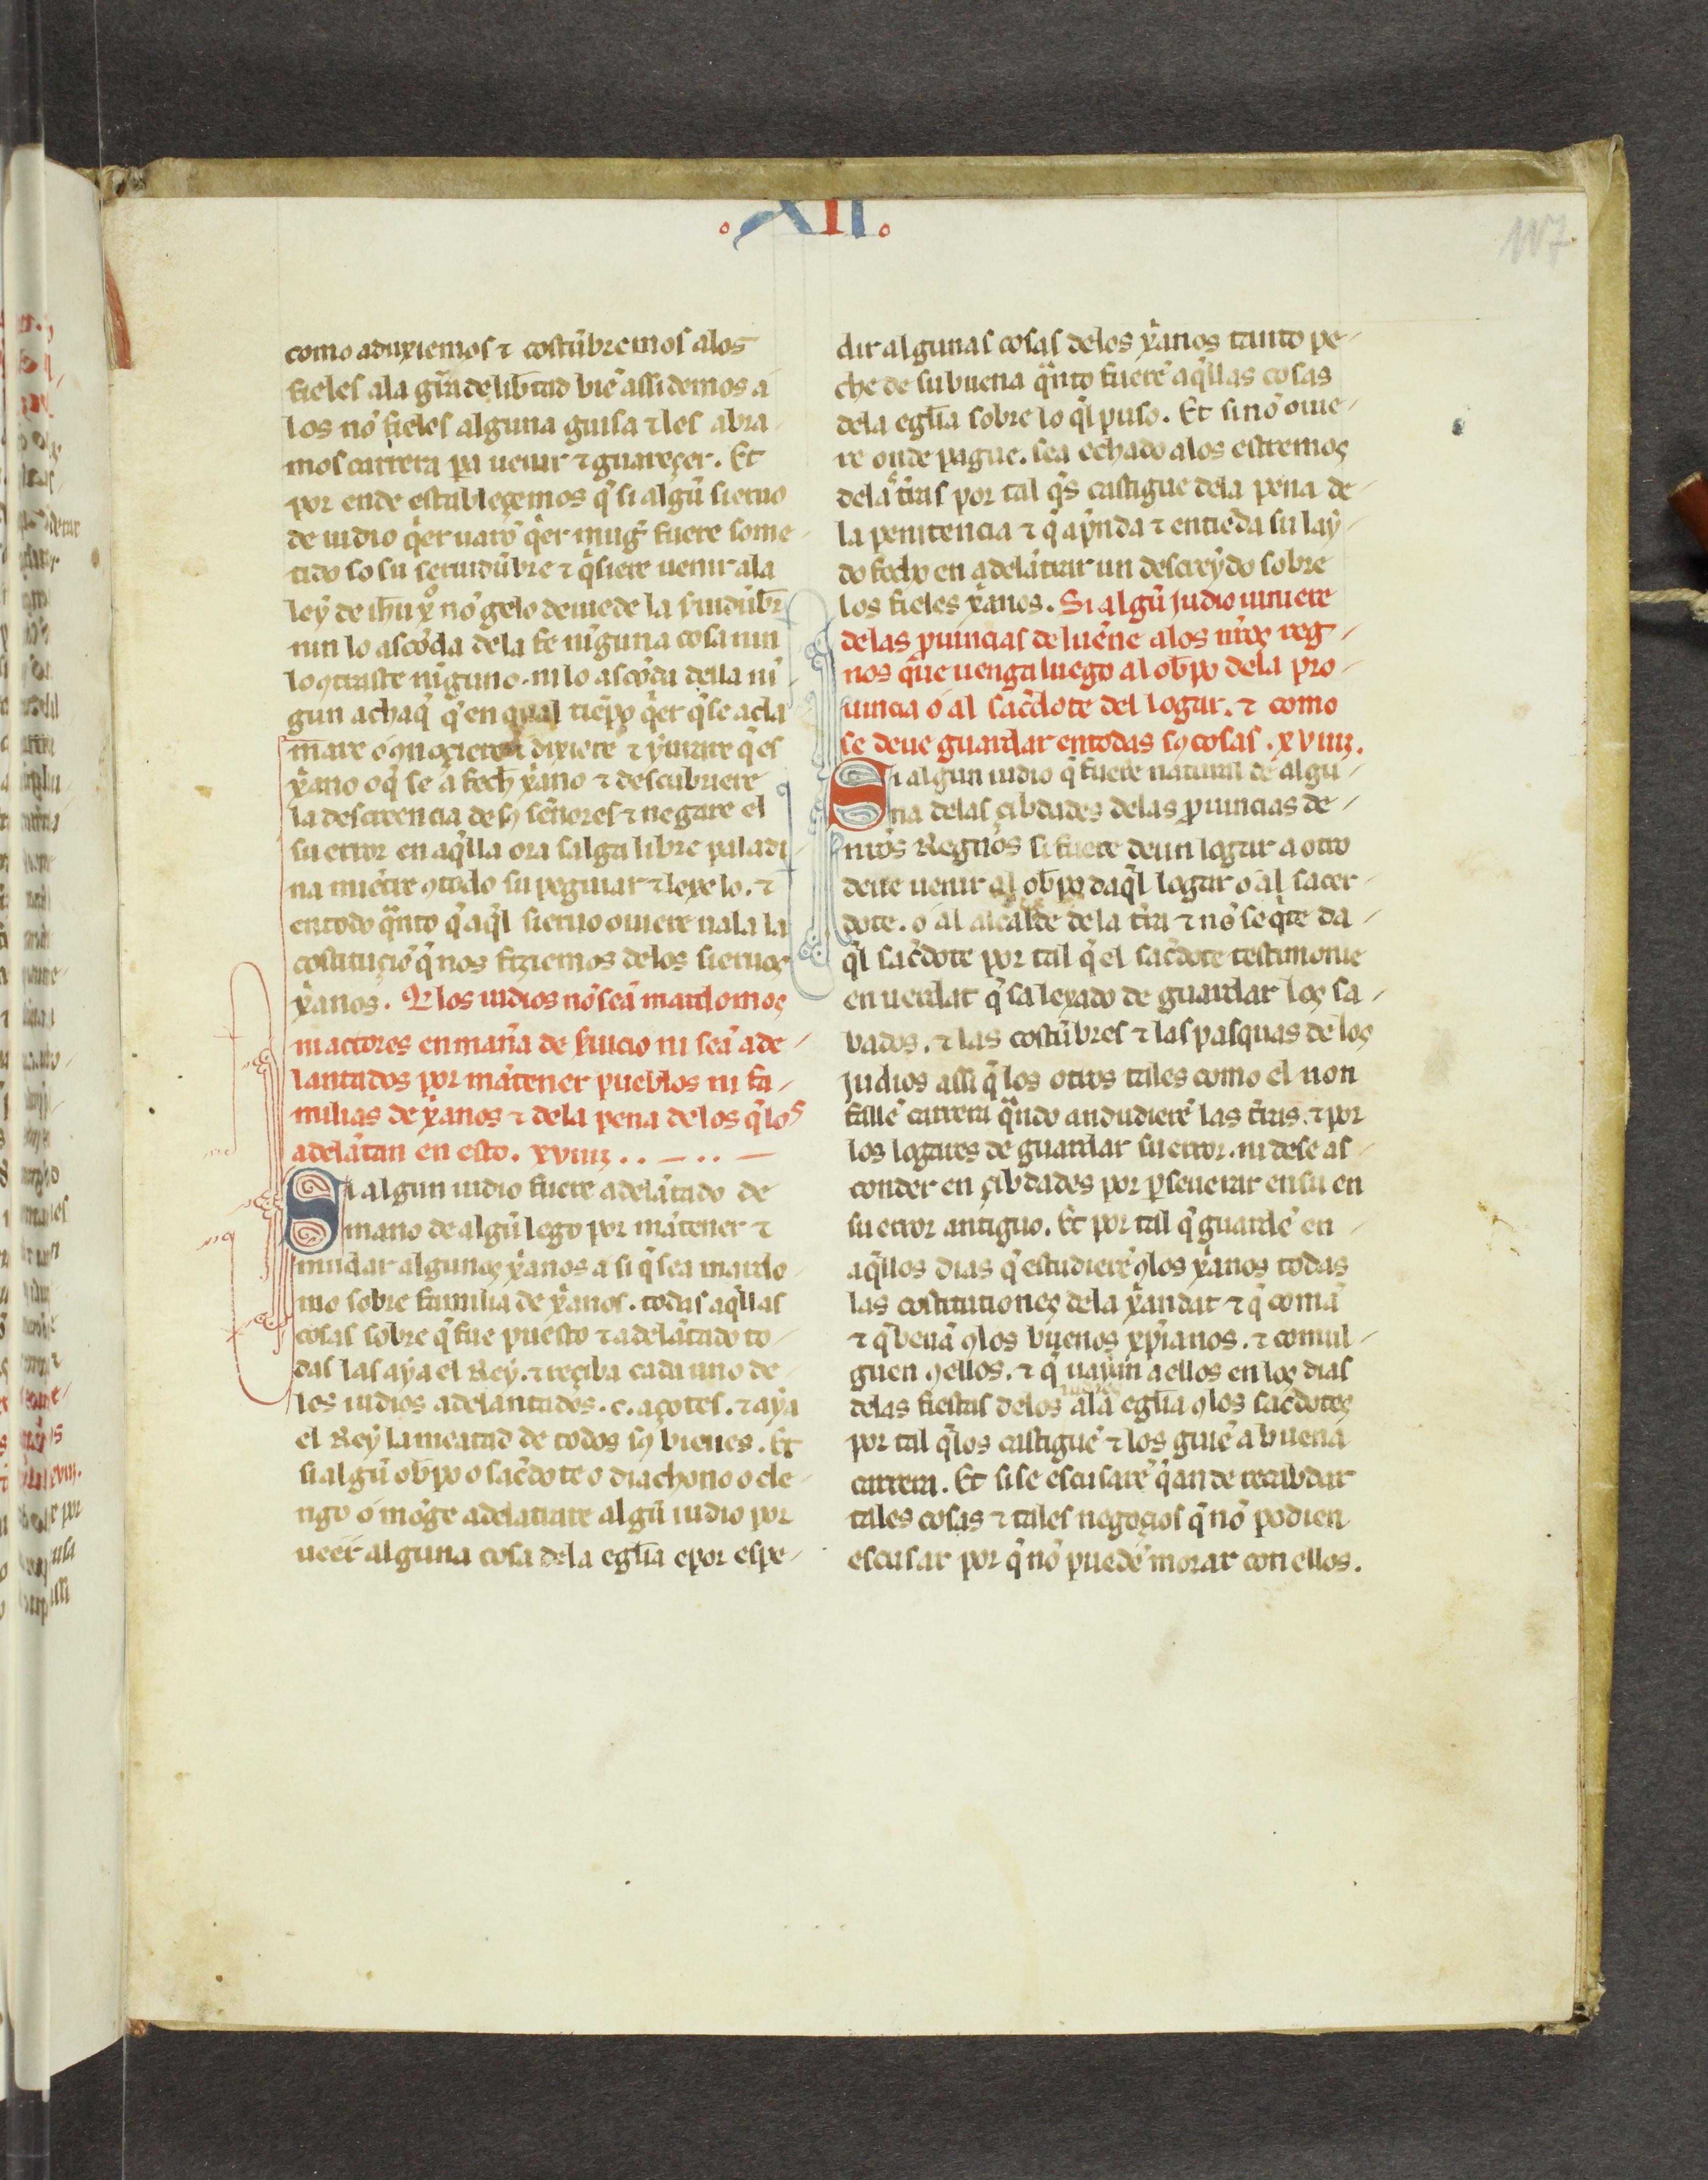 .XII.
117
como aduxiemos ⁊ costũbremos alos
fieles ala gr̃a de lib̃tad biẽ assi demos a
los nõ fieles alguna guisa ⁊ les abra
mos carrera pa uenir ⁊ guareçer. Et
por ende estableçemos q̃ si algũ sieruo
de iudio q̃er uarõ q̃er mug̃ fuere some
tido so su seruidũbre ⁊ q̃siere uenir ala
ley de ih̃u x̃o nõ gelo deuiede la s̃uidũbr̃
nin lo ascõda dela fe nĩguna cosa nin
lo ꝯtraste nĩguno. ni lo ascõda della nĩ
gun achaq̃ q̃ en qual tiẽpo q̃er q̃ se acla
mare o ꝯnoçiere ⁊ dixiere ⁊ yurare q̃ es
x̃ano o q̃ se a fech̃ x̃ano ⁊ descubriere
la descreencia de sꝯ señores ⁊ negare el
su error en aq̃lla ora salga libre paladi
na miẽtre ꝯ todo su peguiar ⁊ lexe lo. ⁊
en todo q̃nto q̃ aq̃l sieruo ouiere uala la
costituçiõ q̃ nos fiziemos delos sieruoς
x̃anos. Q̃ los iudios nõ seã mardomoς
ni actores en mañ̃a de s̃uicio ni seã ade
lantados por mãtener pueblos ni fa
milias de x̃anos ⁊ dela pena delos q̃ los
adelãtan en esto. xviiij..—..—
Si algun iudio fuere adelãtado de
mano de algũ lego por mãtener ⁊
mãdar algunoς x̃anos a si q̃ sea mardo
mo sobre familia de x̃anos. todas aq̃llas
cosas sobre q̃ fue puesto ⁊ adelãtado to
das las aya el Rey. ⁊ reçiba cada uno de
los iudios adelantados. c. açotes. ⁊ aya
el Rey la meatad de todos sꝯ bienes. Et
si algũ ob̃po o sac̃dote o diachono o cle
rigo o mõge adelantare algũ iudio por
ueer alguna cosa dela egl̃ia e por espe
dir algunas cosas delos x̃anos tanto pe
che de su buena q̃nto fuerẽ aq̃llas cosas
dela egl̃ia sobre lo q̃l puso. Et si nõ ouie
re onde pague. sea echado alos estremoς
dela t̃ras por tal q̃s castigue dela pena de
la penitencia ⁊ q̃ ap̃nda ⁊ entiẽda su lay
do fecho en adelãtrar un descreydo sobre
los fieles x̃anos. Si algũ judio uiniere
delas p̃uincias de lueñe alos nr̃oς reg
nos que uenga luego al ob̃po dela pro
uincia o al sac̃dote del logar. ⁊ como
se deue guardar en todas sꝯ cosas. xviiij.
Si algun iudio q̃ fuere natural de algu
na delas çibdades delas p̃uincias de
nr̃os Regnos si fuere de un logar a otro
deue uenir al ob̃po daq̃l logar o al sacer
dote. o al alcalde dela t̃ra ⁊ nõ se q̃te da
q̃l sac̃dote por tal q̃ el sac̃dote testimonie
en uerdat q̃ sa lexado de guardar loς sa
bados. ⁊ las costũbres ⁊ las pasquas de loς
judios assi q̃ los otros tales como el non
fallẽ carrera q̃ndo andudierẽ las t̃ras. ⁊ por
los logares de guardar su error. ni dese as
conder en çibdades por p̃seuerar en su en
su error antiguo. Et por tal q̃ guardẽ en
aq̃llos dias q̃ estudierẽ ꝯ los x̃anos todas
las costitutioneς dela x̃andat ⁊ q̃ comã
⁊ q̃ beuã ꝯ los buenos xp̃ianos. ⁊ comul
guen ꝯ ellos. ⁊ q̃ uayan a ellos en loς dias
delas fiestas delos ala egl̃ia ꝯ los sac̃doteς
por tal q̃ los castiguẽ ⁊ los guiẽ a buena
carrera. Et si se escusarẽ q̃ an de recabdar
tales cosas ⁊ tales negoçios q̃ nõ podien
escusar por q̃ nõ puedẽ morar con ellos.